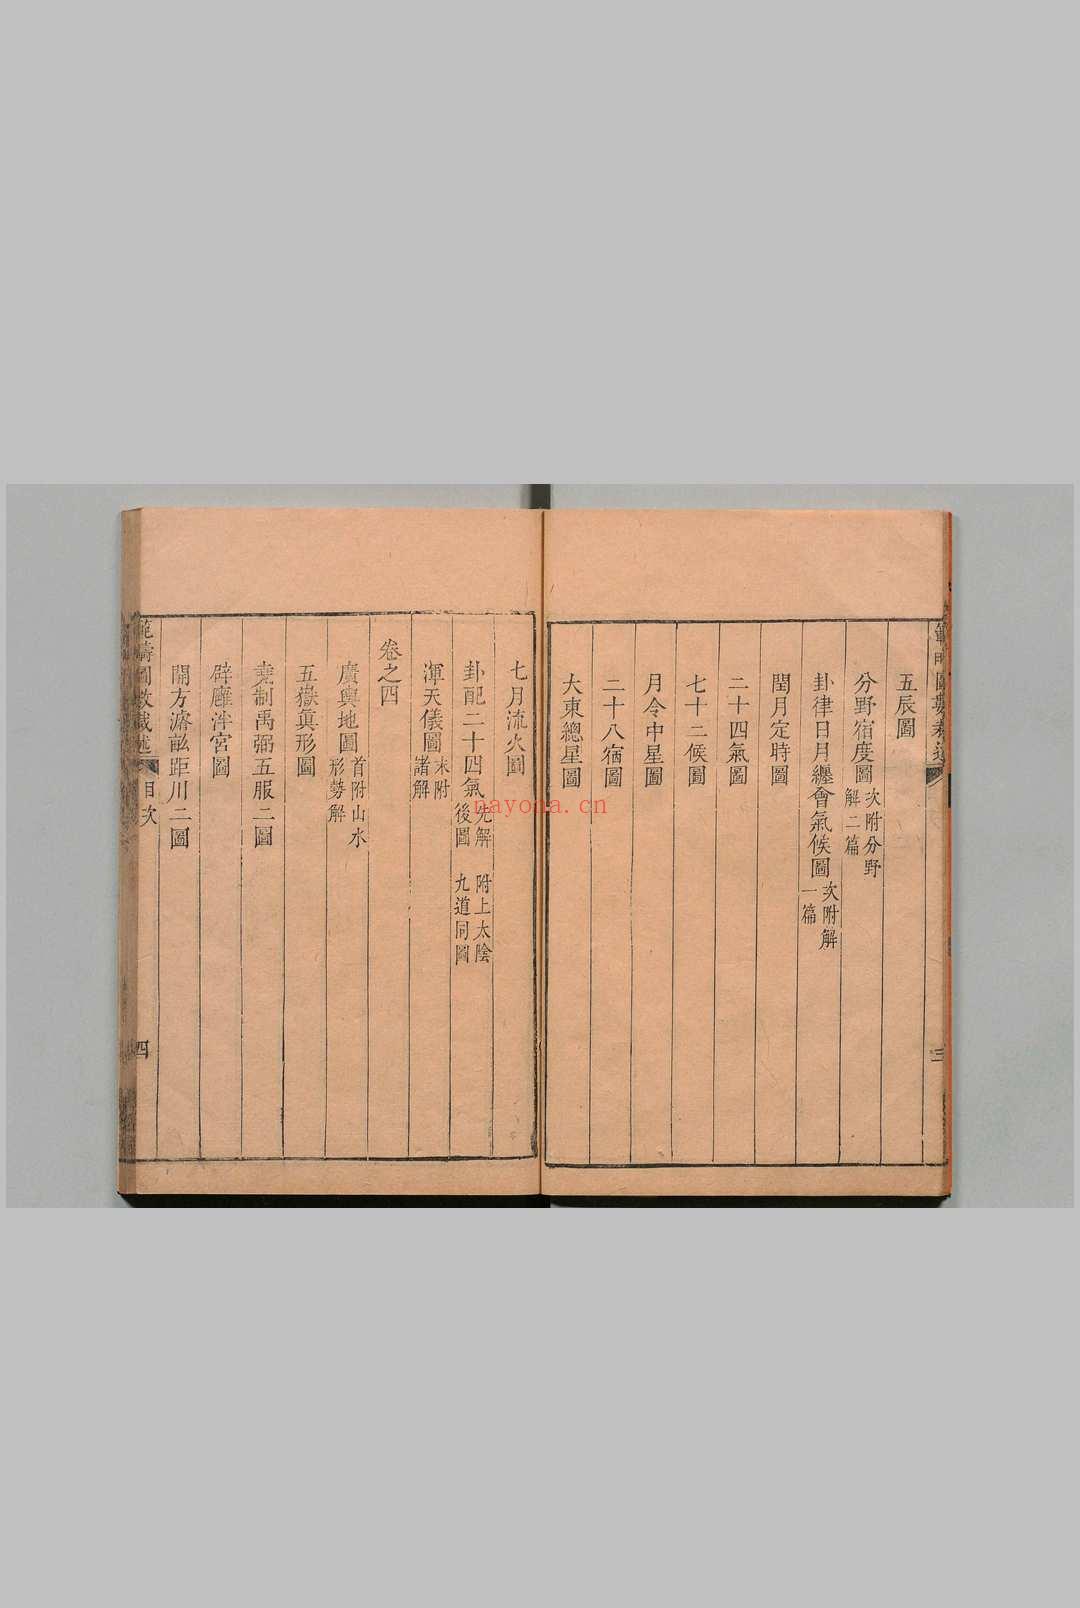 五辰圖
分野宿度圖次附分野解二篇
卦律日月纏會氣候圖次附解一篇
閏月定時圖
二十四氣圖
七十二候圖
月令中星圖
二十八宿圖
大東總星圖
三
七月流火圖
卦配二十四氣先解後圖 附上太陰九道同圖
渾天儀圖末附諸解
卷之四
廣輿地圖首附山水形勢解
五嶽眞形圖
堯制禹弼五服二圖
辟廱泮宮圖
開方濬畝距川二圖
範疇圖數截述 目次 四
nayona.cn